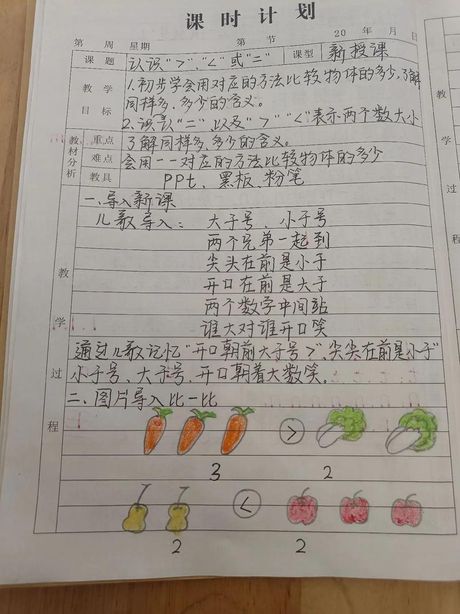 课时计划
第 周 星期 第 节 20 年 月 日
课题 认识“>”、“<”或“=” 课型 新授课
教学目标 1.初步学会用对应的方法比较物体的多少,了解
同样多、多少的含义。
2.认识“=”,以及“>”“<”表示两个数大小
教材分析 重点 了解同样多、多少的含义。
难点 会用一一对应的方法比较物体的多少
教具 PPt、黑板、粉笔
教学过程
一、导入新课
儿歌导入: 大于号、小于号
两个兄弟一起到
尖头在前是小于
开口在前是大于
两个数字中间站
谁大对谁开口笑
通过儿歌记忆“开口朝前大于号>”,尖尖在前是小于“
小于号、大于号、开口朝着大数笑。
二、图片导入比一比
>
3 2
<
2 2
过